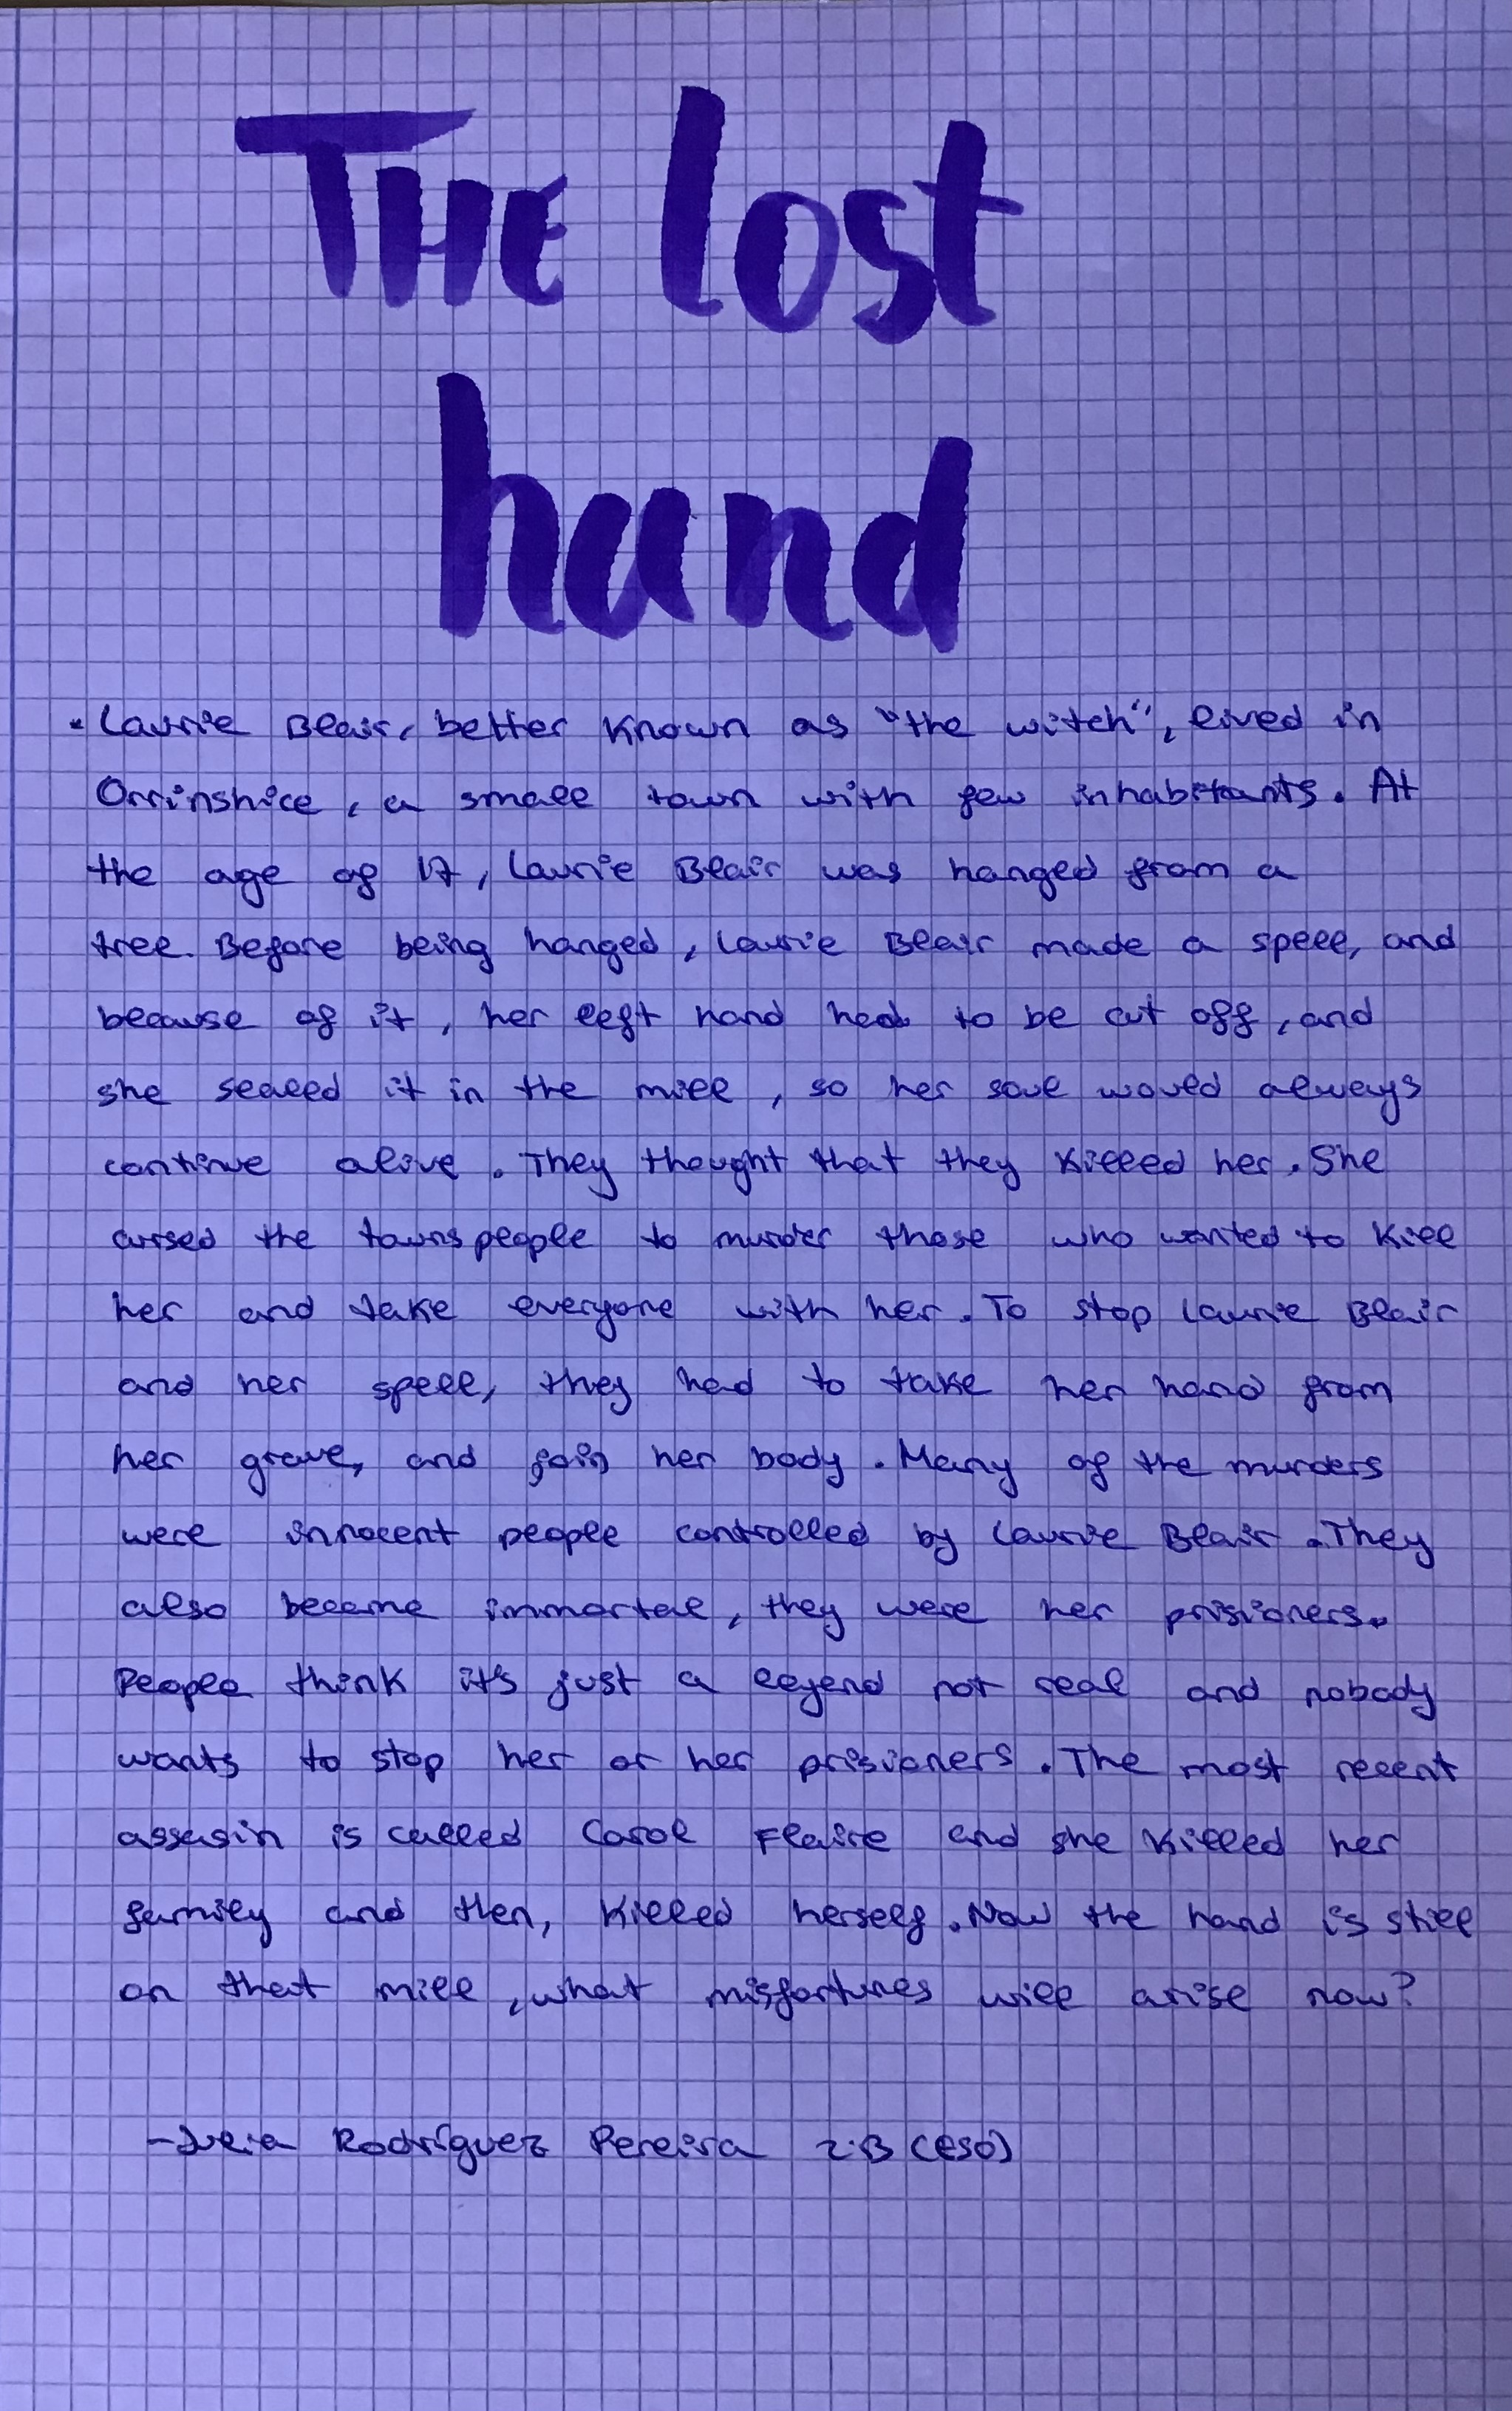 THE lost
hand
• Laurie Blair, better known as "the witch", lived in
Orrinshice, a small town with few inhabitants. At
the age of 17, Laurie Blair was hanged from a
tree. Before being hanged, Laurie Blair made a spell, and
because of it, her left hand had to be cut off, and
she sealed it in the mill, so her soul would always
continue alive. They thought that they killed her. She
cursed the townspeople to murder those who wanted to kill
her and take everyone with her. To stop Laurie Blair
and her spell, they had to take her hand from
her grave, and join her body. Many of the murders
were innocent people controlled by Laurie Blair. They
also became immortal, they were her prisioners.
People think it's just a legend not real and nobody
wants to stop her or her prisioners. The most recent
assasin is called Carol Flaire and she killed her
family and then, killed herself. Now the hand is still
on that mill, what misfortunes will arise now?
- Rodríguez Pereira 2·B (ESO)